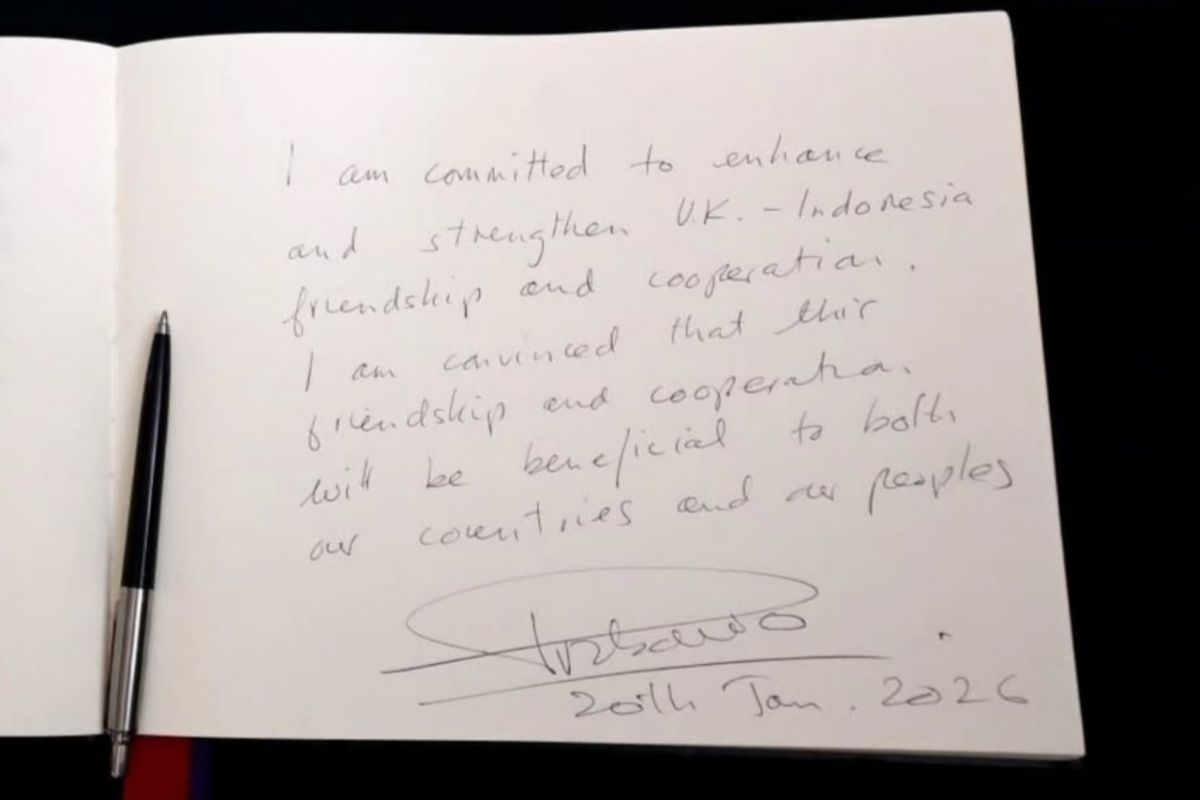 I am committed to enhance
and strengthen U.K. - Indonesia
friendship and cooperation.
I am convinced that this
friendship and cooperation
will be beneficial to both
our countries and our peoples
Prabowo
20th Jan. 2026